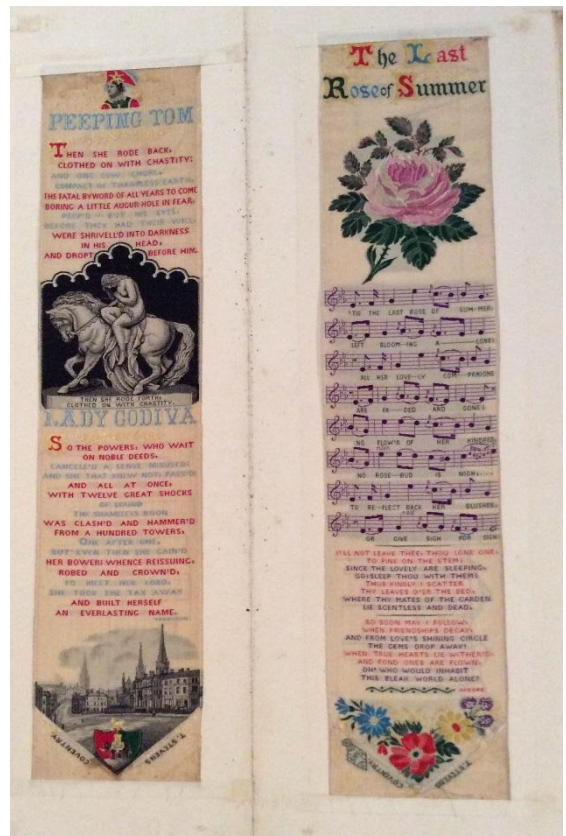 PEEPING TOM
THEN SHE RODE BACK,
CLOTHED ON WITH CHASTITY:
AND ONE LOW CHURL,
COMPACT OF THANKLESS EARTH,
THE FATAL BYWORD OF ALL YEARS TO COME
BORING A LITTLE AUGUR-HOLE IN FEAR,
PEEP'D - BUT HIS EYES,
BEFORE THEY HAD THEIR WILL,
WERE SHRIVELL'D INTO DARKNESS
IN HIS HEAD,
AND DROPT BEFORE HIM.
THEN SHE RODE FORTH,
CLOTHED ON WITH CHASTITY.
LADY GODIVA
SO THE POWERS, WHO WAIT
ON NOBLE DEEDS,
CANCELL'D A SENSE MISUSED:
AND SHE THAT KNEW NOT, PASS'D:
AND ALL AT ONCE,
WITH TWELVE GREAT SHOCKS
OF SOUND
THE SHAMELESS NOON
WAS CLASH'D AND HAMMER'D
FROM A HUNDRED TOWERS,
ONE AFTER ONE,
BUT EVEN THEN SHE GAIN'D
HER BOWER: WHENCE REISSUING,
ROBED AND CROWN'D,
TO MEET HER LORD,
SHE TOOK THE TAX AWAY
AND BUILT HERSELF
AN EVERLASTING NAME.
COVENTRY. T. STEVENS
The Last
Rose of Summer
'TIS THE LAST ROSE OF SUM-MER,
LEFT BLOOM-ING A-LONE:
ALL HER LOVE-LY COM-PANIONS
ARE FA-DED AND GONE:
NO FLOW'R OF HER KINDRED
NO ROSE-BUD IS NIGH,
TO RE-FLECT BACK HER BLUSHES,
OR GIVE SIGH FOR SIGH
I'LL NOT LEAVE THEE, THOU LONE ONE,
TO PINE ON THE STEM:
SINCE THE LOVELY ARE SLEEPING,
GO, SLEEP THOU WITH THEM:
THUS KINDLY I SCATTER
THY LEAVES O'ER THE BED,
WHERE THY MATES OF THE GARDEN
LIE SCENTLESS AND DEAD.
SO SOON MAY I FOLLOW,
WHEN FRIENDSHIPS DECAY,
AND FROM LOVE'S SHINING CIRCLE
THE GEMS DROP AWAY!
WHEN TRUE HEARTS LIE WITHER'D,
AND FOND ONES ARE FLOWN,
OH! WHO WOULD INHABIT
THIS BLEAK WORLD ALONE?
MOORE
COVENTRY T. STEVENS